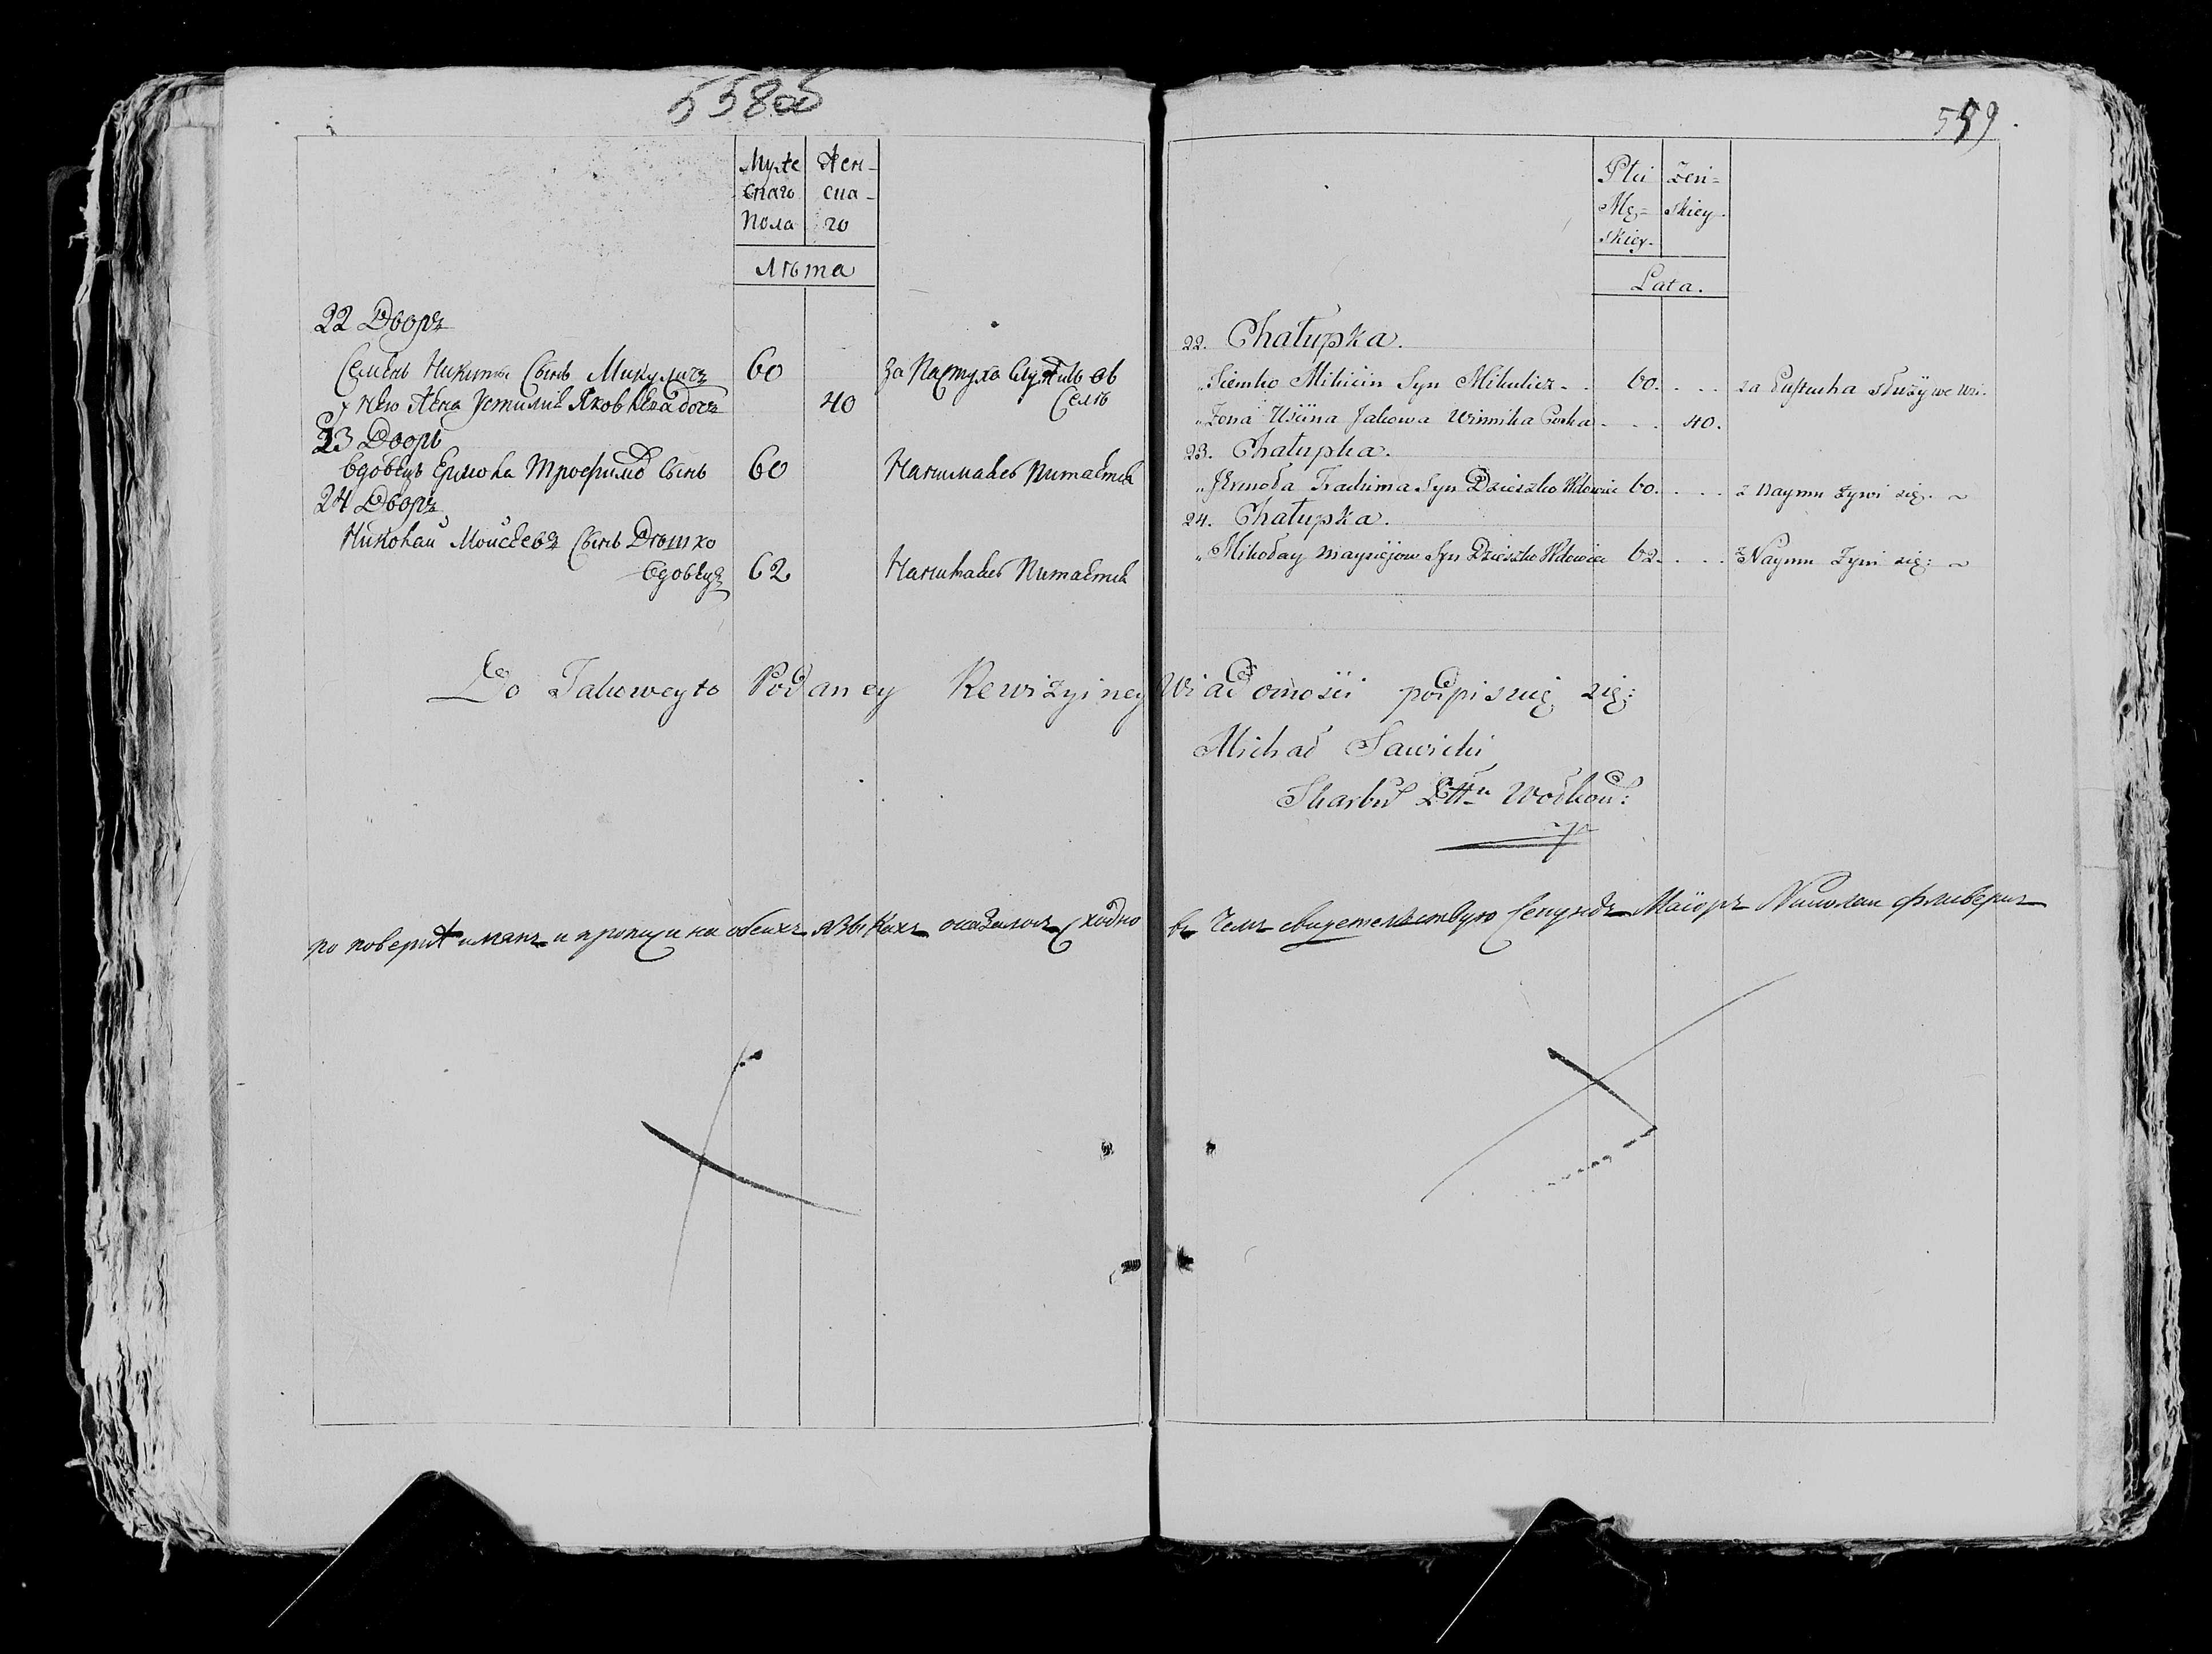 558об
Муже
скаго
Пола
Жен-
ска-
го
Лѣта
22 Дворъ
Семенъ Никиты Сынъ Микуличъ 60 За Пастуха Служитъ ов
Селѣ
у Него Жена Яковлева доч 40
23 Дворъ
Вдовецъ Ермола Трофимо Сынъ 60 Нанимаясь Питается
24 Дворъ
Николай Моисеевъ Сынъ Дѣшко
Вдовецъ 62 Нанимаясь Питается
559.
Plci
Mę=
skiey
Zeń=
skiey
Lata.
22. Chałupka.
„Siemko Mikicin Syn Mikulicz 60. za Pastucha służy we wsi.
„Zona Jakowa Corka 40.
23. Chałupka.
„Jermoła Trachima Syn Dzieszko Wdowiec 60. z Naymu żywi się. ~
24. Chałupka.
„Mikołay Maysejow Syn Dzieszko Wdowiec 62. z Naymu Zywi się: ~
Do Takoweyto Podaney Rewizyiney Wiadomości podpisuię się:
Michał Sawicki
Skarbu Wołkow:
по поверки и на обеихъ языкахъ оказалось Сходно въ Чемъ свидетелствую Секундъ Маіоръ Николаи